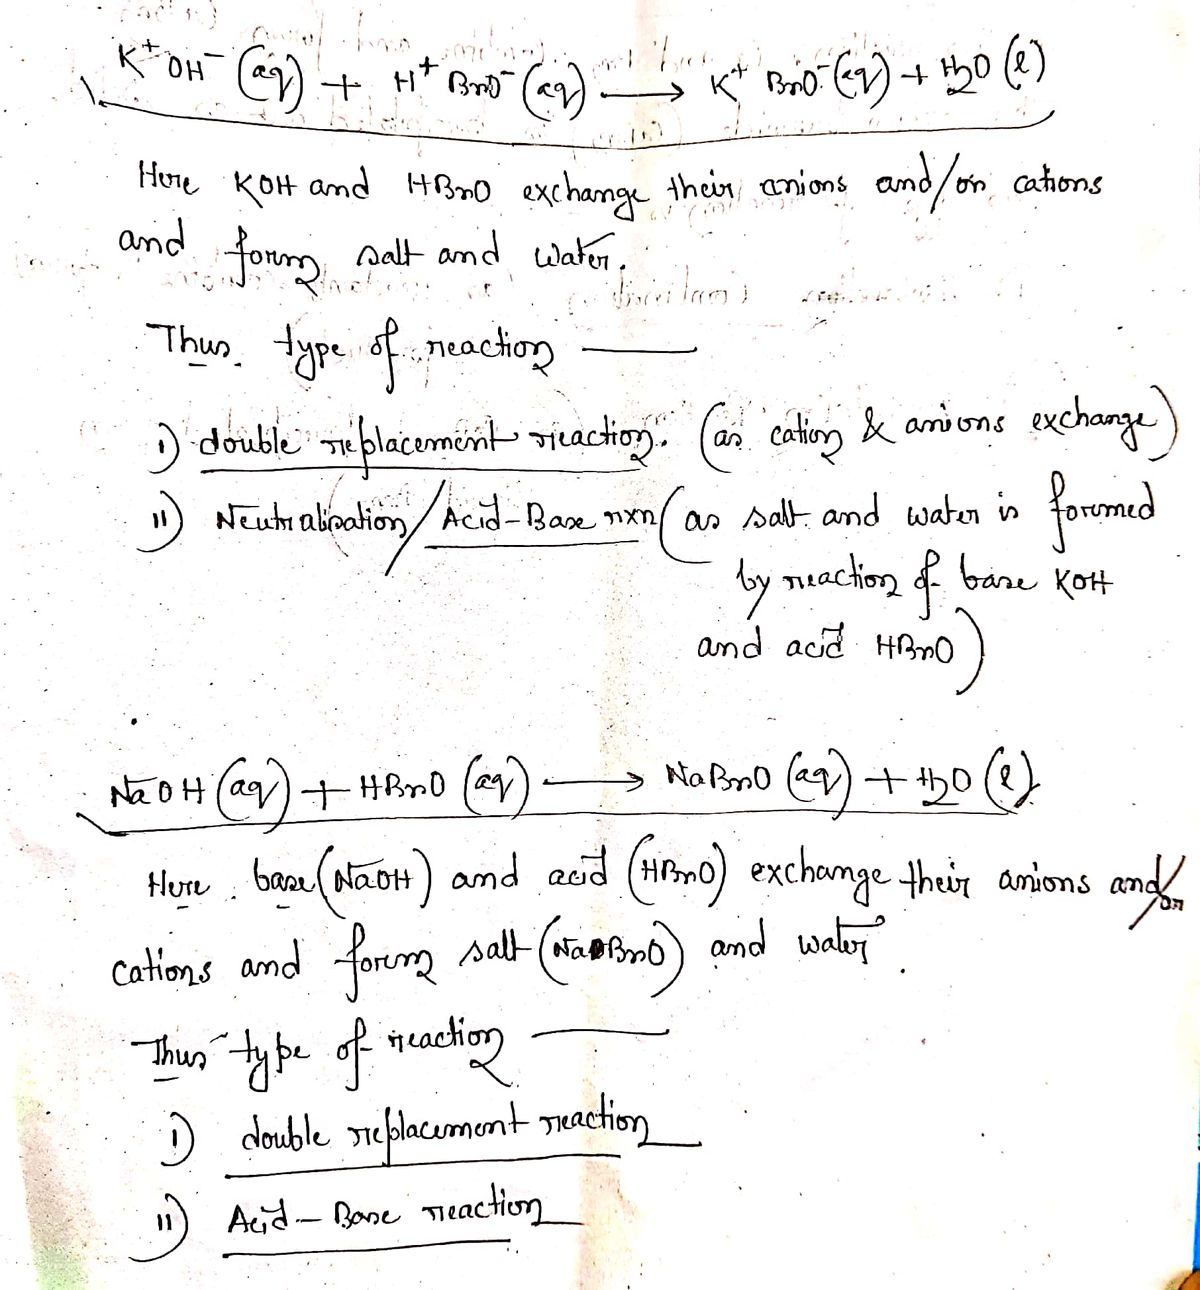 K⁺OH⁻ (aq) + H⁺ BrO⁻ (aq) ⟶ K⁺ BrO⁻ (aq) + H₂O (l)
Here KOH and HBrO exchange their anions and/or cations
and form salt and water.
Thus type of reaction —
i) double replacement reaction. (as cation & anions exchange)
ii) Neutralisation/Acid-Base rxn (as salt and water is formed
by reaction of base KOH
and acid HBrO)
NaOH (aq) + HBrO (aq) ⟶ NaBrO (aq) + H₂O (l).
Here base (NaOH) and acid (HBrO) exchange their anions and/or
cations and form salt (NaBrO) and water.
Thus type of reaction —
i) double replacement reaction
ii) Acid-Base reaction